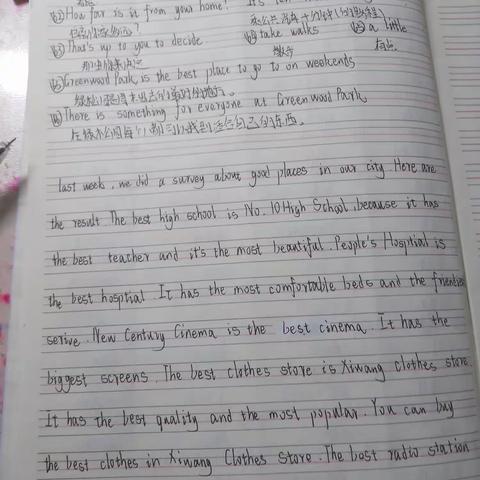 How far is it from your home?
take walks
a little
That's up to you to decide.
Greenwood Park is the best place to go to on weekends
There is something for everyone at Greenwood Park
last week, we did a survey about good places in our city. Here are
the result. The best high school is No. 10 High School, because it has
the best teacher and it's the most beautiful. People's Hosptial is
the best hosptial. It has the most comfortable beds and the friendiest
serive. New Century Cinema is the best cinema. It has the
biggest screens. The best clothes store is Xiwang clothes store.
It has the best quality and the most popular. You can buy
the best clothes in Xiwang Clothes Store. The best radio station